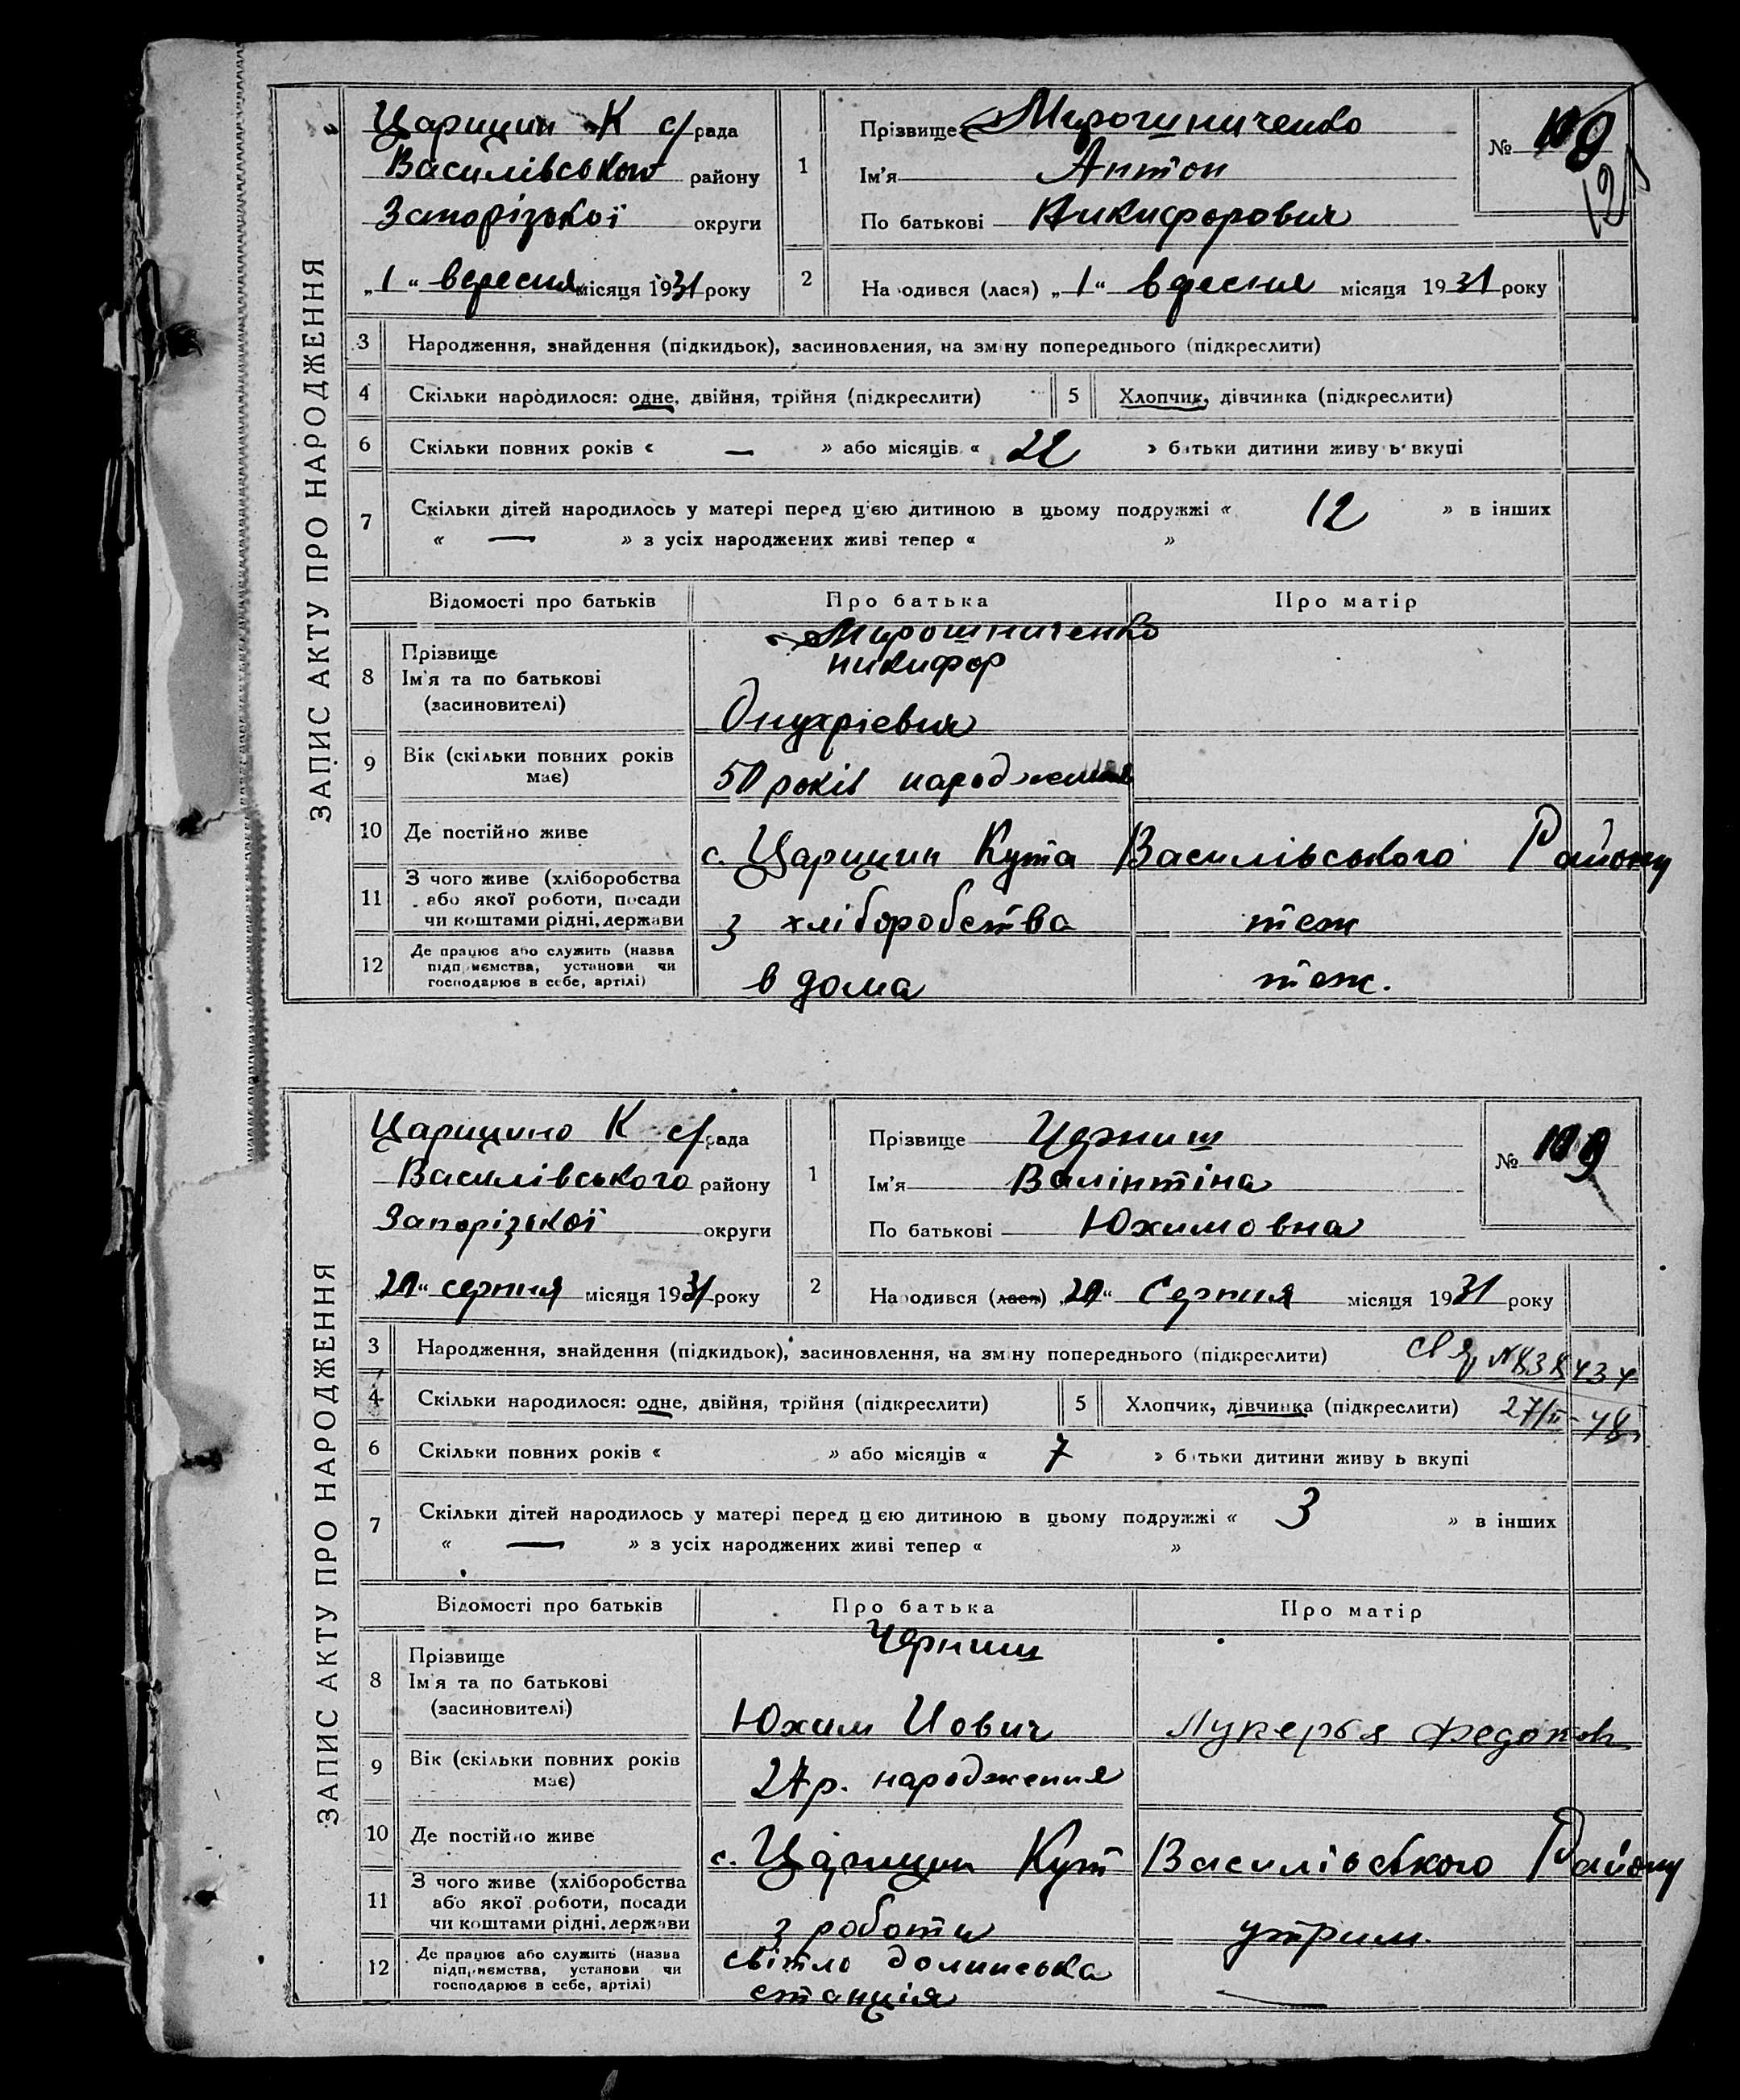 ЗАПИС АКТУ ПРО НАРОДЖЕННЯ
Царицин К с/рада
Василівського району
Запорізької округи
„1“ вересня місяця 1931 року
1 Прізвище Мирошниченко
Ім'я Антон
По батькові Никифорович
№
2 На одився (лася) „1“ вересня місяця 1931 року
3 Народження, знайдення (підкидьок), засиновлення, на зміну попереднього (підкреслити)
4 Скільки народилося: одне, двійня, трійня (підкреслити)
5 Хлопчик, дівчинка (підкреслити)
6 Скільки повних років « — » або місяців « 22 » батьки дитини живу ь вкупі
7 Скільки дітей народилось у матері перед цією дитиною в цьому подружжі « 12 » в інших
« — » з усіх народжених живі тепер « »
Відомості про батьків Про батька Про матір
8 Прізвище
Ім'я та по батькові
(засиновителі)
Мирошниченко
никифор
Онухріевич
9 Вік (скільки повних років має)
50 років народження
10 Де постійно живе
с. Царицин Кута Василівського Району
11 З чого живе (хліборобства
або якої роботи, посади
чи коштами рідні, держави
з хліборобства теж
12 Де працює або служить (назва
підприємства, установи чи
господарює в себе, артілі)
в дома теж.
ЗАПИС АКТУ ПРО НАРОДЖЕННЯ
Царицино К с/рада
Василівського району
Запорізької округи
„20“ серпня місяця 1931 року
1 Прізвище Черниш
Ім'я Валінтіна
По батькові Юхимовна
№ 109
2 На одився (лася) „20“ Серпня місяця 1931 року
3 Народження, знайдення (підкидьок), засиновлення, на зміну попереднього (підкреслити)
4 Скільки народилося: одне, двійня, трійня (підкреслити)
5 Хлопчик, дівчинка (підкреслити)
27/II-48
6 Скільки повних років « » або місяців « 7 » батьки дитини живу ь вкупі
7 Скільки дітей народилось у матері перед цією дитиною в цьому подружжі « 3 » в інших
« — » з усіх народжених живі тепер « »
Відомості про батьків Про батька Про матір
8 Прізвище
Ім'я та по батькові
(засиновителі)
Черниш
Юхим Иович Лукерья
9 Вік (скільки повних років має)
27 р. народження
10 Де постійно живе
с. Царицин Кут Василівського Району
11 З чого живе (хліборобства
або якої роботи, посади
чи коштами рідні, держави
з роботи утрим.
12 Де працює або служить (назва
підприємства, установи чи
господарює в себе, артілі)
світло долинська
станція —